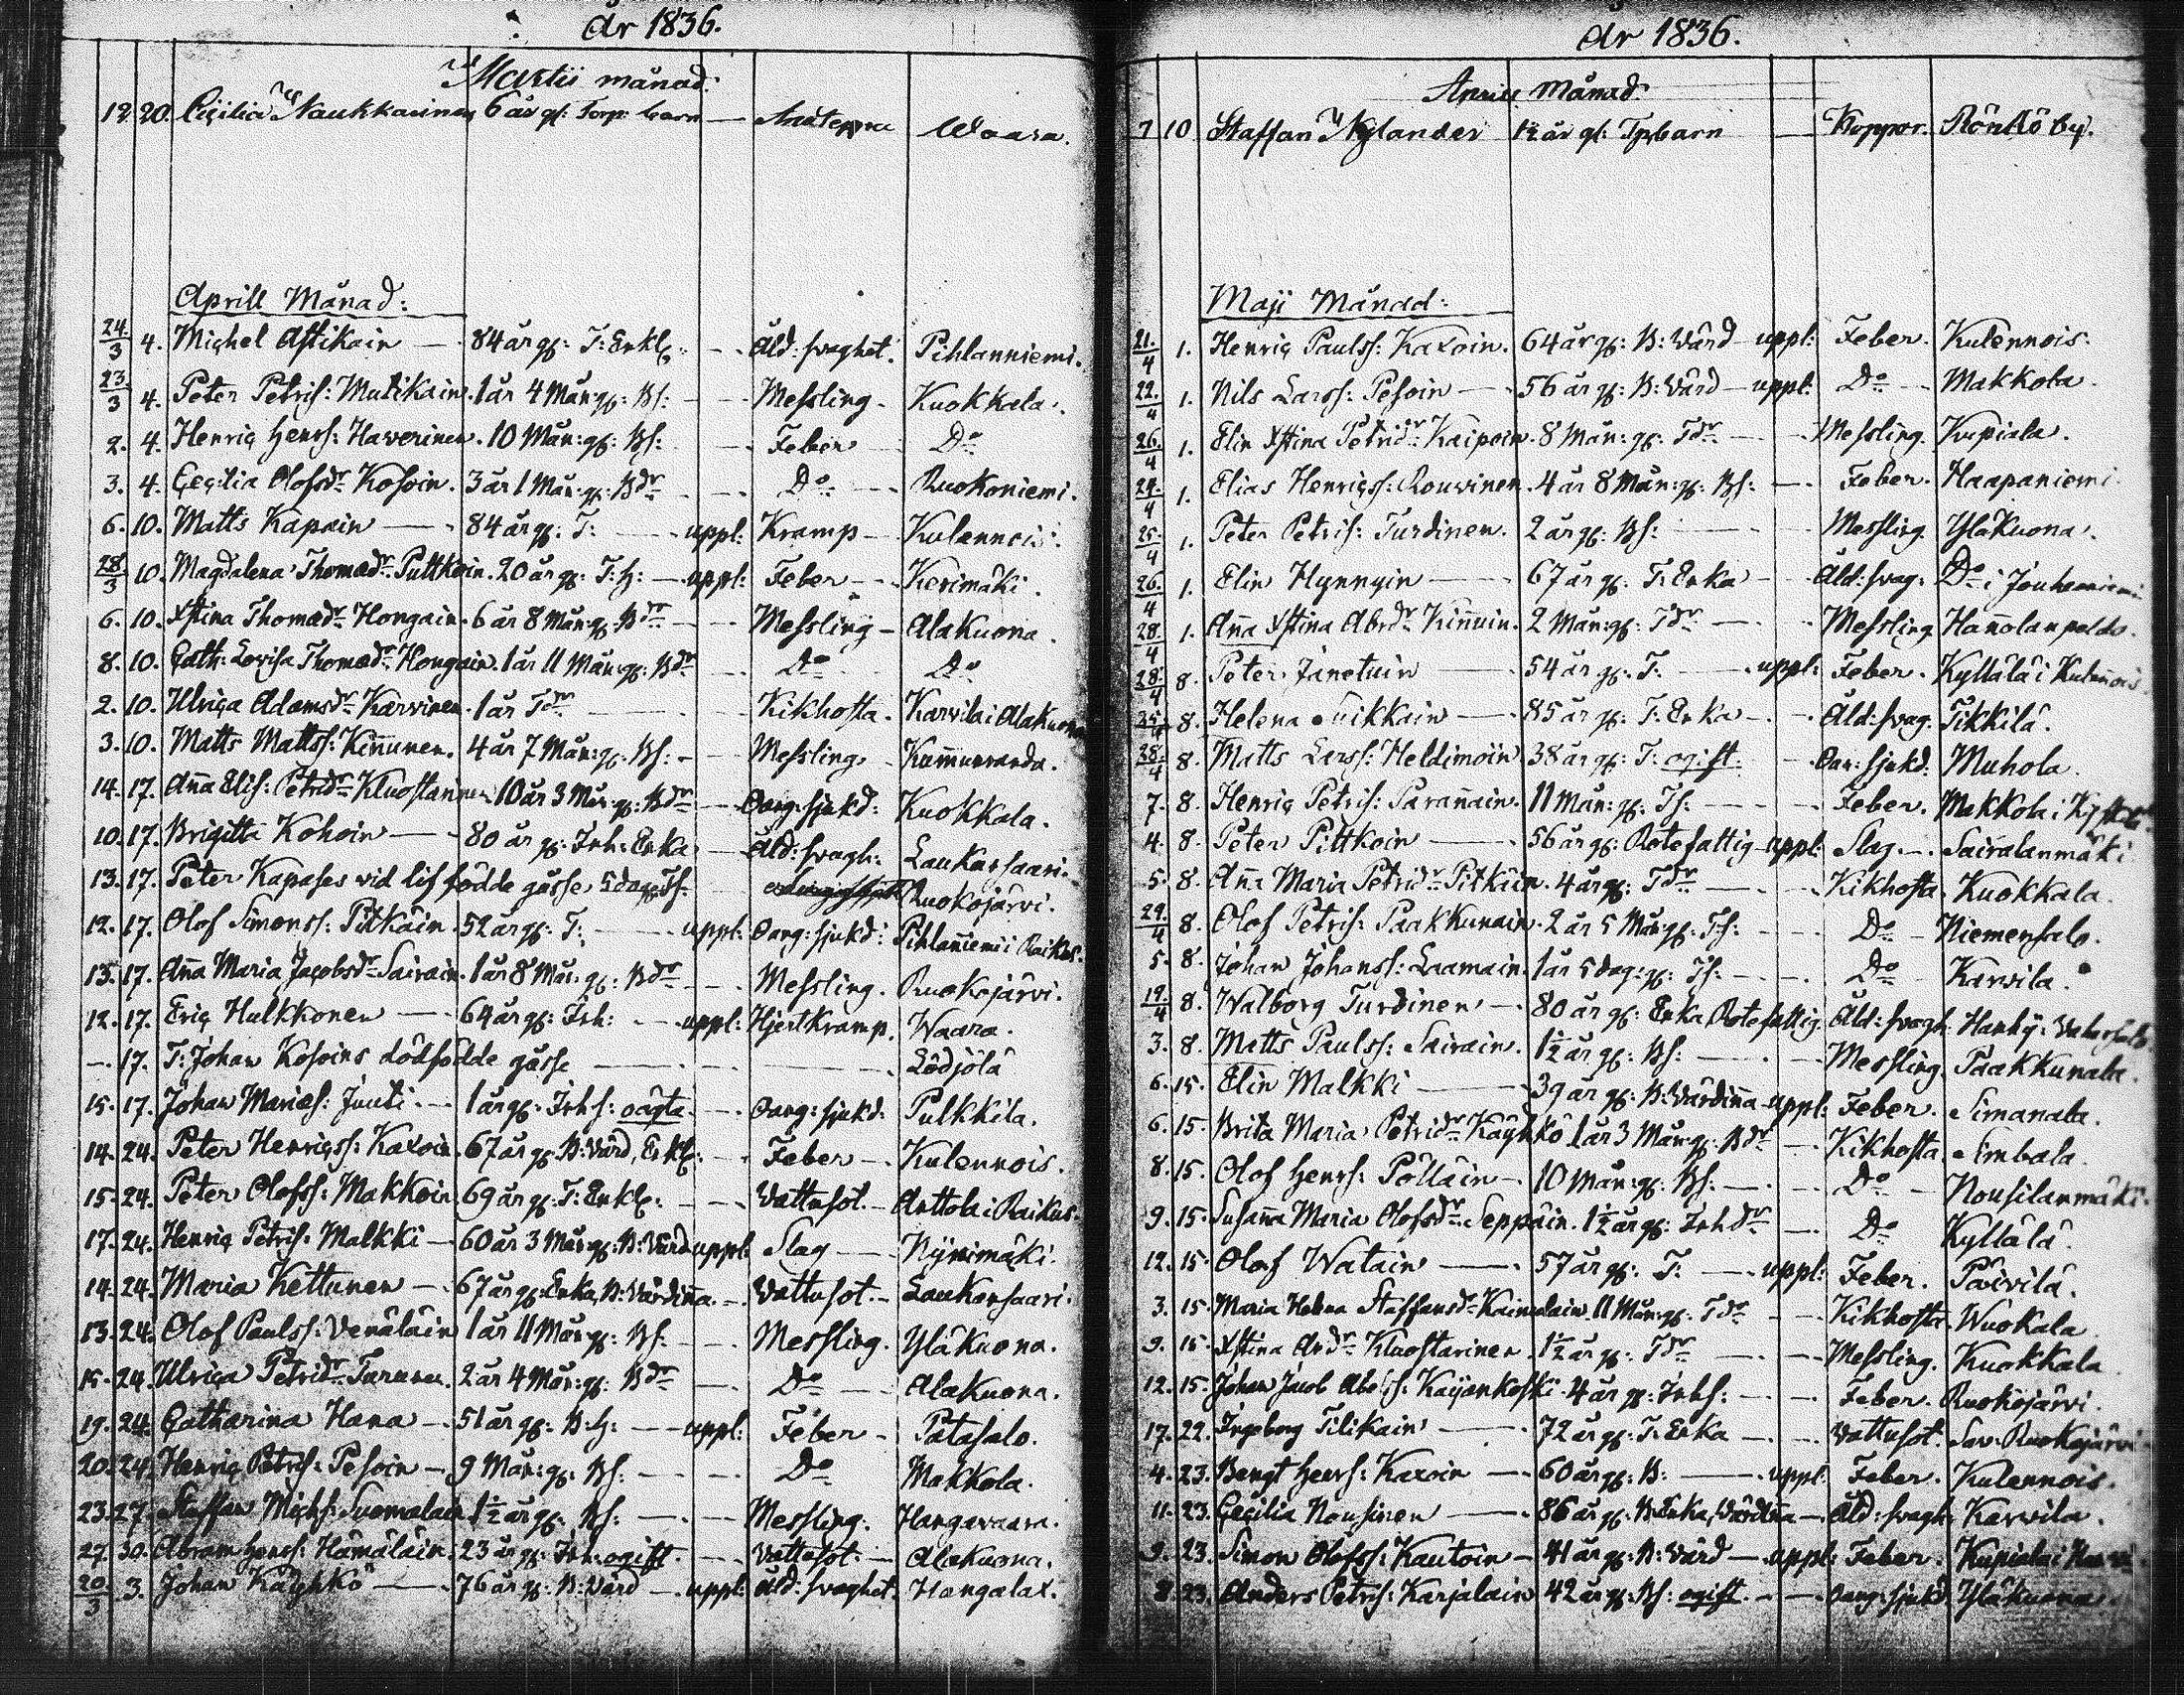 År 1836.
Martii månad:
12. 20. Cicilia Naukkarinen 6 år gl: Torp: barn — Waara.
Aprill Månad:
24/3 4. Michel Astikain — 84 år gl: T: Enkl: — Åld: svaghet. Pihlanniemi.
23/3 4. Peter Petris: Mutikain. 1 år 4 Mån: gl: Bs: — Messling — Kuokkala.
2. 4. Henric Henrs: Haverinen. 10 Mån: gl: Bs: — Feber — Do
3. 4. Cecilia Olofsdr Kosoin. 3 år 1 Mån: gl: Bdr — Do — Ruokoniemi.
6. 10. Matts Kapain — 84 år gl: T: — uppl: Kramp — Kulennois.
28/3 10. Magdalena Thomædr Puttkoin. 20 år gl: T: h: — uppl: Feber — Kerimäki.
6. 10. Xstina Thomædr Hongain. 6 år 8 Mån: gl: Bdr — Messling — Alakuona.
8. 10. Cath: Lovisa Thomædr Hongain. 1 år 11 Mån: gl: Bdr Do Do
2. 10. Ulrica Adamsdr Karvinen. 1 år Tdr — Kikhosta. Karvila i Alakuona
3. 10. Matts Mattss: Kinnunen. 4 år 7 Mån: gl. Bs: — Messling. Kummunranda.
14. 17. Anna Elis: Petridr Kluostarinen 10 år 3 Mån: gl: Bdr — Oang: sjukd: Kuokkala.
10. 17. Brigitta Kohoin — 80 år gl: Inh: Enka — Åld: svagh: Laukansaari.
13. 17. Peter Kapases vid lif födde gosse 5 dag: Ts: Ruokojärvi.
12. 17. Olof Simonss: Pitkäin. 52 år gl: T: — uppl: Oang: sjukd: Pihlanniemi i Raikus.
13. 17. Anna Maria Jacobsdr Sairain. 1 år 8 Mån: gl: Bdr — Messling. Ruokojärvi.
12. 17. Eric Hulkkonen — 64 år gl: Inh: — uppl: Hjertkramp. Waara.
—. 17. T: Johan Kosoins dödfödde gosse — Lödjölä
15. 17. Johan Mariæs: Juuti. — 1 år gl: Inhs: oägta. — Oang: sjukd: Pulkkila.
14. 24. Peter Henricss: Kaxoin. 67 år gl: B: Värd, Enkl: — Feber — Kulennois.
15. 24. Peter Olofss: Makkoin. 69 år gl: T: Enkl: — Vattusot. — Anttola i Raikus.
17. 24. Henric Petris: Malkki — 60 år 3 Mån: gl: B: Värd uppl: Slag — Nynimäki.
14. 24. Maria Kettunen — 67 år gl: Enka, B: Värdinna. — Vattusot. — Laukansaari.
13. 24. Olof Paulss: Venäläin 1 år 11 Mån: gl: Bs: — Messling. Yläkuona.
15. 24. Ulrica Petridr Turunen. 2 år 4 Mån: gl: Bdr — Do — Alakuona.
19. 24. Catharina Hana — 51 år gl: B: h: — uppl: Feber — Patasalo.
20. 24. Henric Petris: Pesoin — 9 Mån: gl: Bs: — Do Makkola.
23. 27. Staffan Michs: Suomalain 1½ år gl: Bs: — Messling. Hangavaara.
27. 30. Abram Henrs: Hämäläin. 23 år gl: Inh: ogift. — Vattusot. — Alakuona.
20/3 3. Johan Käyhkö — 76 år gl: B: Värd — uppl: Åld: svaghet. Hangalax.
År 1836.
Aprill Månad:
7 10 Staffan Nylander 1½ år gl: Tpbarn — Koppor. Rönkö by.
Maji Månad:
21/4 1. Henric Paulss: Kaxoin. 64 år gl: B: Värd — uppl: Feber. Kulennois:
22/4 1. Nils Larss: Pesoin — 56 år gl: B: Värd — uppl: Do — Makkola.
26/4 1. Elin Xstina Petridr Kaipoin. 8 Mån: gl: Tdr — Messling. Kupiala.
24/4 1. Elias Henricss: Rouvinen. 4 år 8 Mån: gl: Bs: — Feber. Haapaniemi.
25/4 1. Peter Petris: Turdinen. 2 år gl: Bs: — Messling. Yläkuona.
26/4 1. Elin Hynnyin — 67 år gl: T: Enka — Åld: svag: Do i Jouhenniemi
28/4 1. Anna Xstina Abrdr Kinnuin. 2 Mån: gl: Tdr — Messling. Hannolanpeldo.
28/4 8. Peter Jänetuin — 54 år gl: T: — uppl: Feber. Kyllälä i Kulennois.
25/4 8. Helena Suikkain — 85 år gl: T: Enka — Åld: svag. Tikkilä.
28/4 8. Matts Larss: Heldimoin 38 år gl: T: ogift. — Oan: sjukd: Muhola.
7. 8. Henric Petris: Parannain. 11 Mån: gl: Ts: — Feber. Makkola i
4. 8. Peter Pittkoin — 56 år gl: Rotefattig uppl: Slag. — Sairalanmäki
5. 8. Anna Maria Petridr Pitkäin. 4 år gl: Tdr — Kikhosta. Kuokkala.
29/4 8. Olof Petris: Paakkunain. 2 år 5 Mån: gl: Ts: — Do — Niemensalo.
5. 8. Johan Johanss: Laamain. 1 år 5 dag: gl: Ts: — Do Karvila.
19/4 8. Walborg Turdinen — 80 år gl: Enka, Rotefattig. Åld: svagh.
3. 8. Matts Paulss: Sairain. 1½ år gl: Bs: — Messling. Paakkunala.
6. 15. Elin Malkki — 39 år gl: B: Värdinna uppl: Feber. Simanala.
6. 15. Brita Maria Petridr Käyhkö 1 år 3 Mån: gl: Bdr — Kikhosta. Simbala.
8. 15. Olof Henrs: Pölläin — 10 Mån: gl: Bs: — Do — Nousilanmäki.
9. 15. Susanna Maria Olofsdr Seppäin. 1½ år gl: Inhdr — Do Kyllälä.
12. 15. Olof Watain — 57 år gl: T: — uppl: Feber. Päivilä.
3. 15. Maria Helena Staffansdr Kainulain. 11 Mån: gl: Tdr — Kikhosta. Wuokala
9. 15. Xstina Andr Kluostarinen. 1½ år gl: Tdr — Messling. Kuokkala
12. 15. Johan Jacob Abels: Kaijankoski. 4 år gl: Inhs: — Feber. Ruokojärvi.
17. 22. Ingeborg Tilikain — 72 år gl: T: Enka — Vattusot. Sav: Ruokojärvi
4. 23. Bengt Henrs: Kaxoin — 60 år gl: B: — uppl: Feber. Kulennois.
11. 23. Cecilia Nousinen — 86 år gl: B: Enka, Värdinna — Åld: svagh. Karvila.
9. 23. Simon Olofss: Kautoin — 41 år gl: B: Värd — uppl: Feber. Kupiala i
8. 23. Anders Petris: Karjalain 42 år gl: Bs: ogift. — Oang: sjukd. Yläkuona.